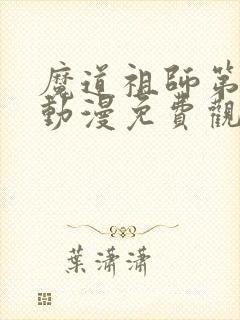 魔道祖師第
動漫免費觀
葉瀟瀟